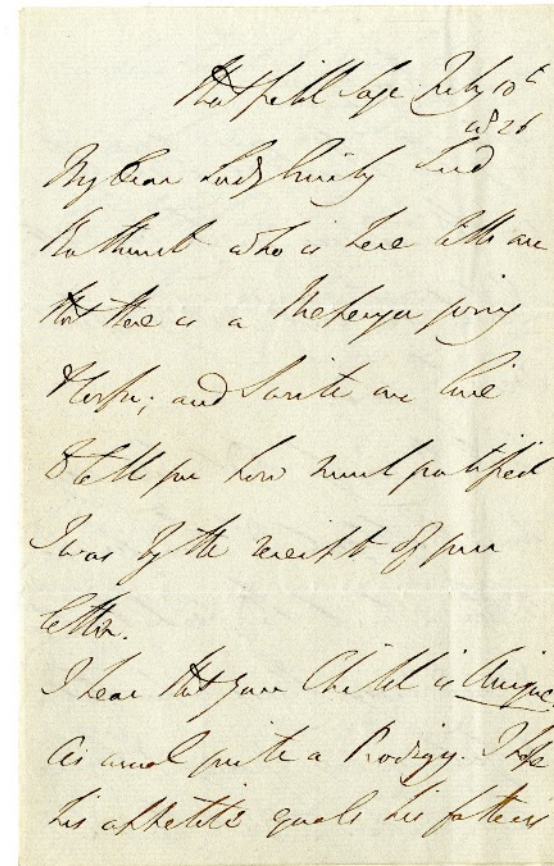 Stratfield Saye July 10th
1826
My Dear Lady Emily Lord
Bathurst who is here tells me
that there is a Messenger going
to Corfu; and I write one line
to tell you how much gratified
I was by the receipt of your
letter.
I hear that your Child is Unique
as usual quite a Prodigy. I hope
his appetite equals his father's